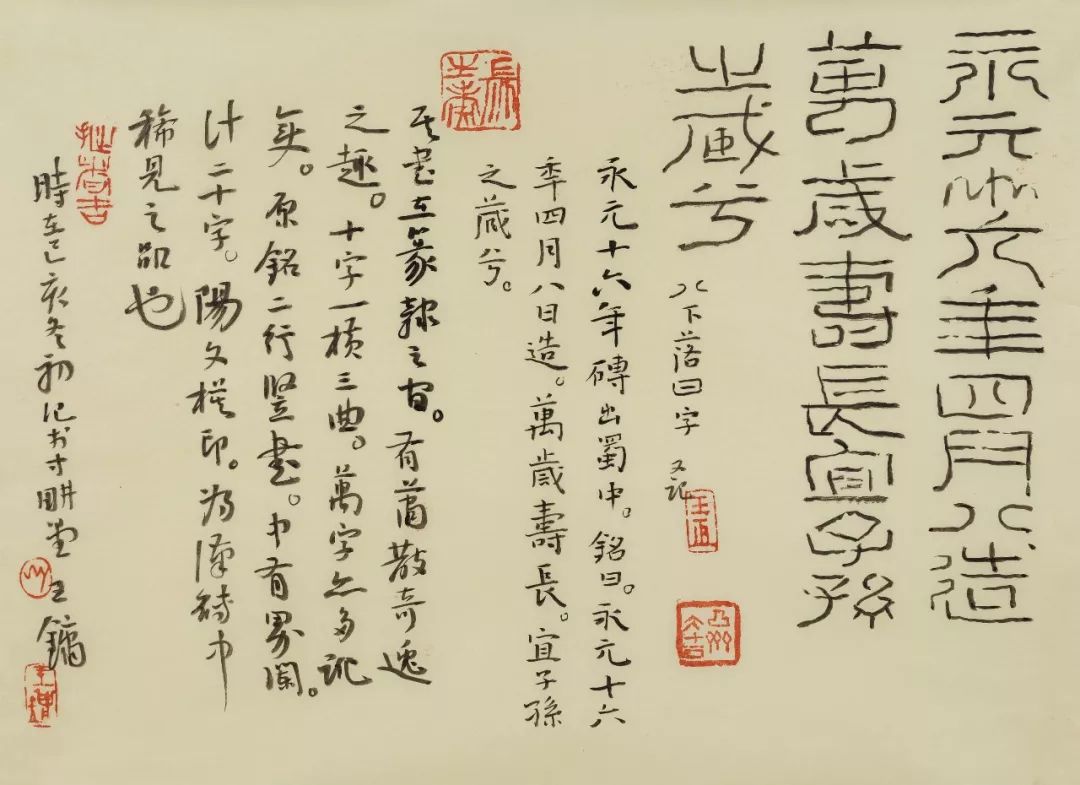 永元十六年四月八造
萬歲壽長宜子孫
之藏兮
八下落日字 又記
永元十六年磚出蜀中。銘曰。永元十六
年四月八日造。萬歲壽長。宜子孫
之藏兮。
其書在篆隸之間。有蕭散奇逸
之趣。十字一橫三曲。萬字亦多訛
變。原銘二行豎書。中有界闌。
計二十字。陽文模印。為漢磚中
稀見之品也
時在己亥冬初記於寸耕堂王鏞